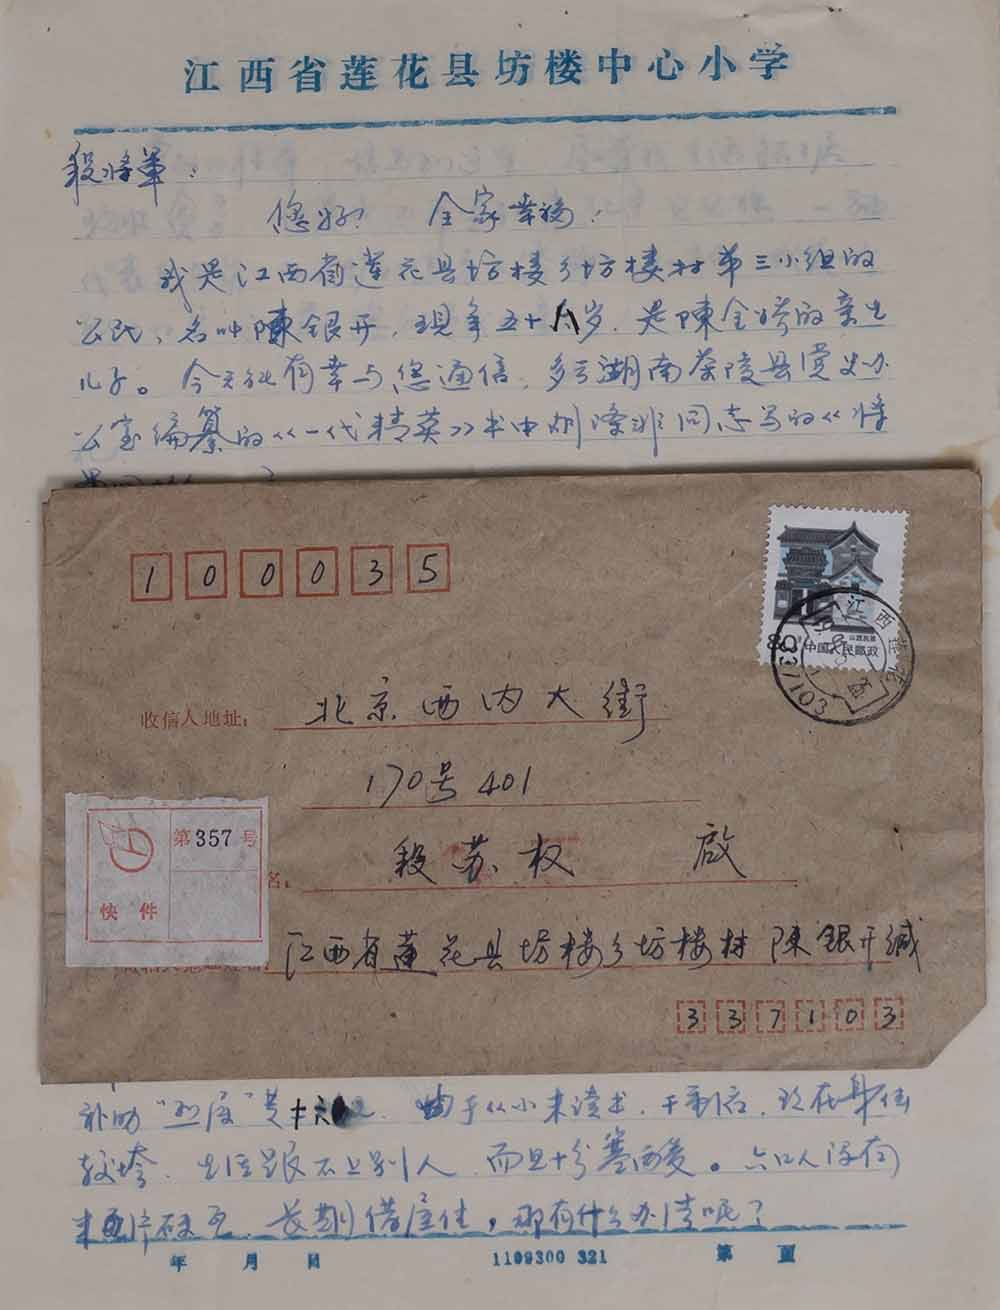 江西省莲花县坊楼中心小学
段将军：
您好！ 全家幸福！
我是江西省莲花县坊楼乡坊楼村第三小组的
公民，名叫陳银开，现年五十八岁，是陳全的亲生
儿子。今天能有幸与您通信，多亏湖南茶陵县党史办
公室编纂的《一代精英》书中同志写的《将
100035
江西莲花
中国人民邮政
337103
收信人地址：北京西内大街
170号401
第357号
快件
名：段苏权 启
江西省莲花县坊楼乡坊楼村 陳银开缄
337103
补助 由于从小未读书，
生活跟不上别人，而且十分寒酸。六口人没有
长期借屋住，那有什么办法呢？
年 月 日 1109300 321 第 页